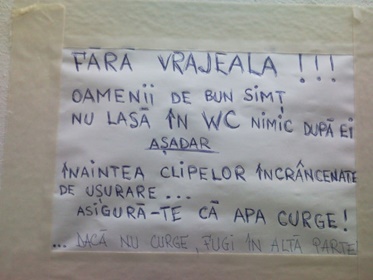 FĂRĂ VRĂJEALA !!!
OAMENII DE BUN SIMȚ
NU LASĂ ÎN WC NIMIC DUPĂ EI
AȘADAR
ÎNAINTEA CLIPELOR ÎNCRÂNCENATE
DE UȘURARE ...
ASIGURĂ-TE CĂ APA CURGE!
... DACĂ NU CURGE, FUGI ÎN ALTĂ PARTE